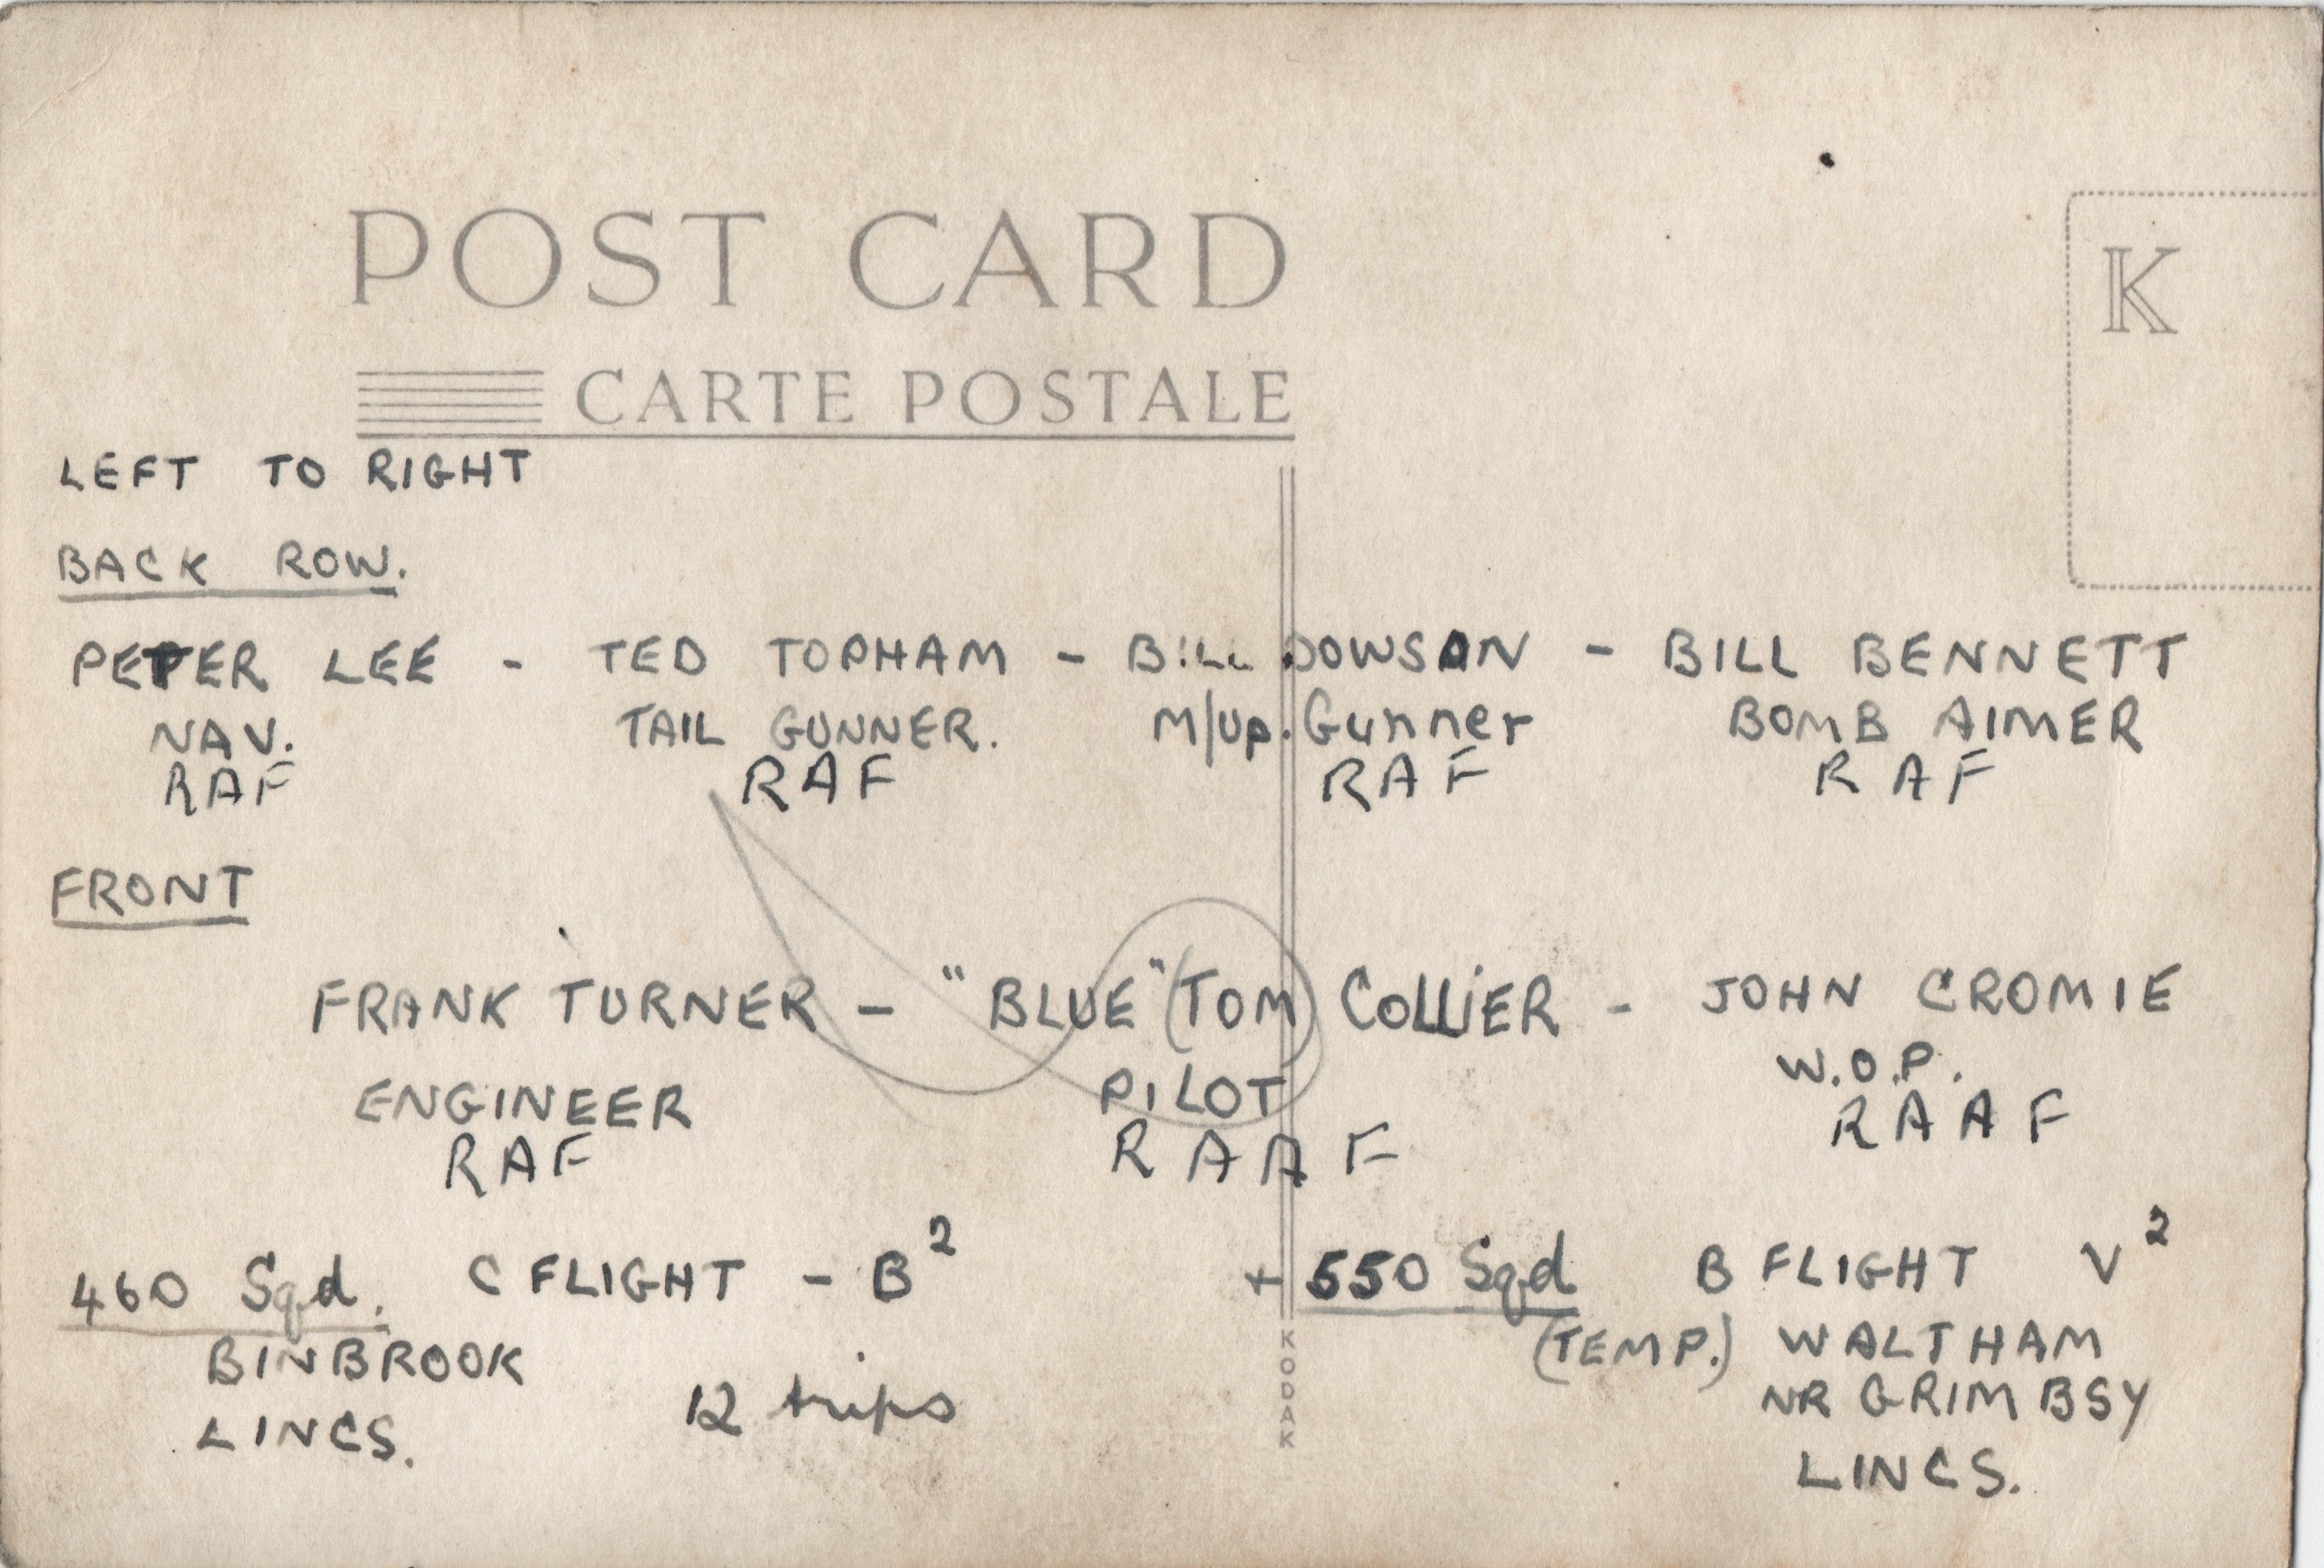 POST CARD
K
CARTE POSTALE
LEFT TO RIGHT
BACK ROW.
PETER LEE - TED TOPHAM - BILL DOWSON - BILL BENNETT
NAV. TAIL GUNNER. M/Up. Gunner BOMB AIMER
RAF RAF RAF RAF
FRONT
FRANK TURNER - "BLUE" (TOM) COLLIER - JOHN CROMIE
ENGINEER PILOT W.O.P.
RAF RAAF RAAF
460 Sqd. C FLIGHT - B² + 550 Sqd B FLIGHT V²
BINBROOK (TEMP.) WALTHAM
LINCS. 12 trips NR GRIMBSY
LINCS.
KODAK